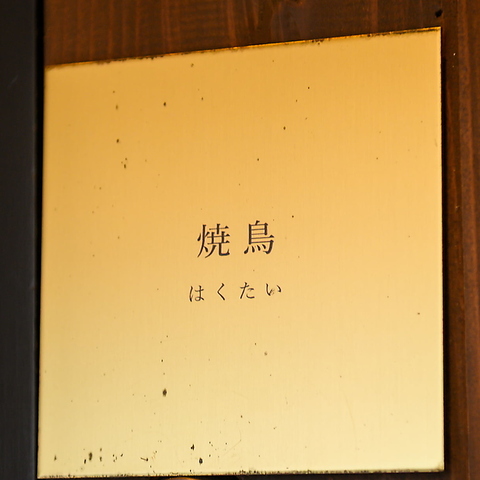 焼鳥
はくたい